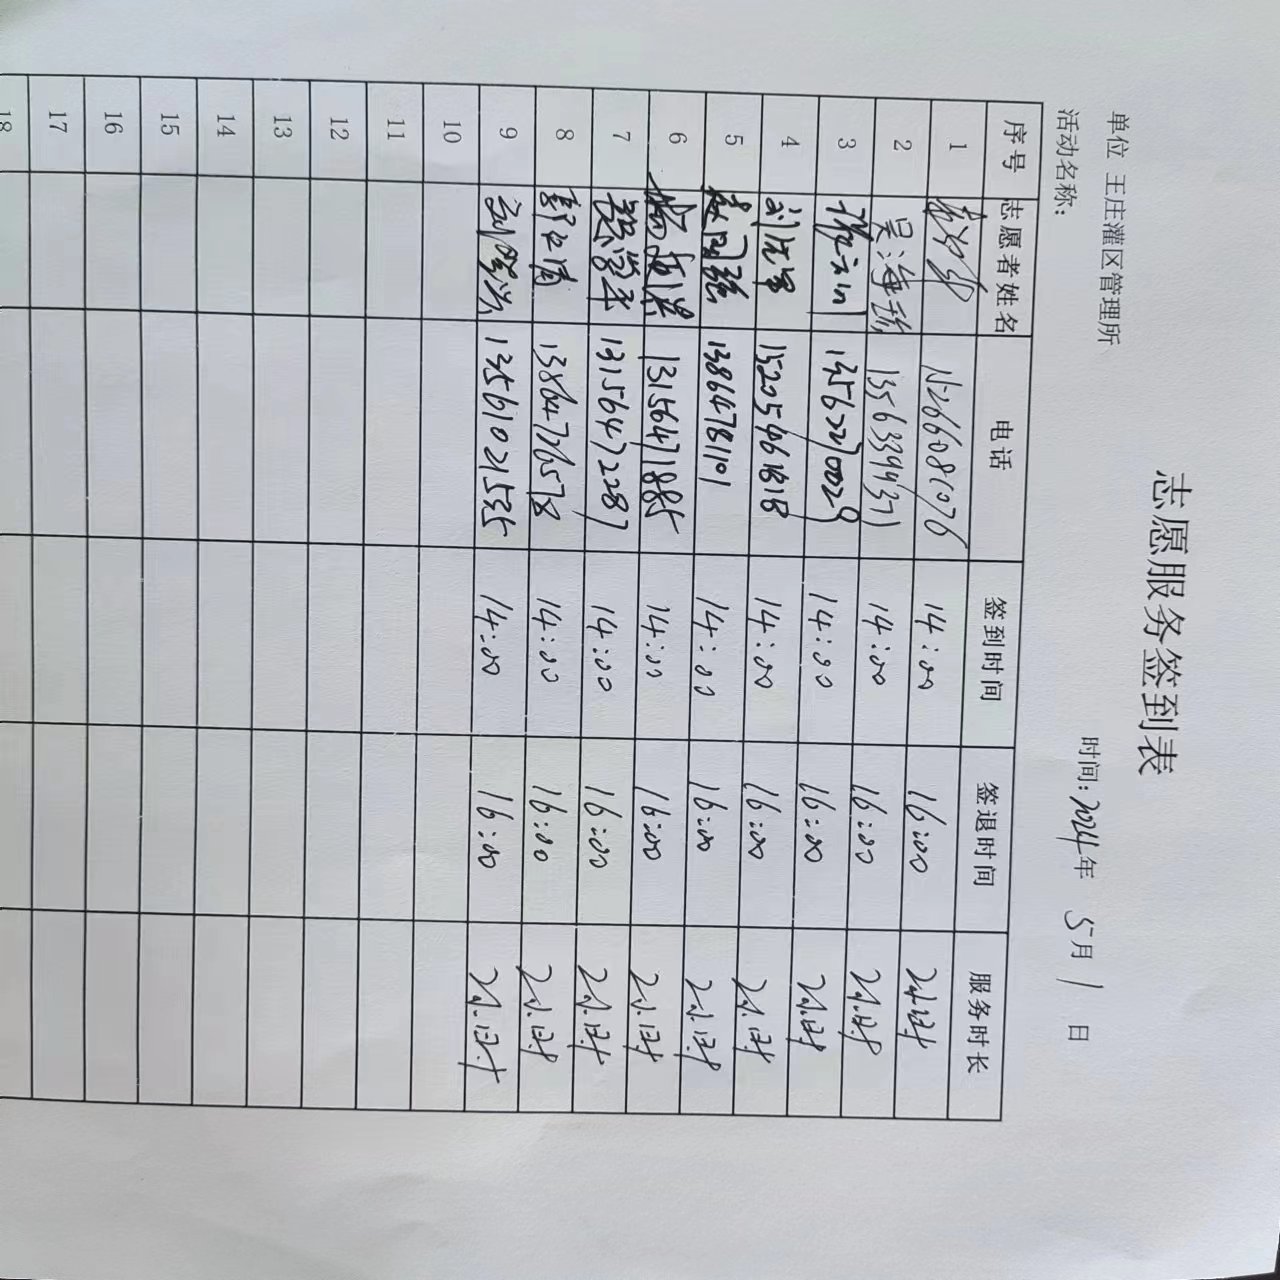 志愿服务签到表
单位 王庄灌区管理所 时间: 2024年 5月 1 日
活动名称:
序号 志愿者姓名 电话 签到时间 签退时间 服务时长
1 14:00 16:00 2小时
2 吴海 14:00 16:00 2小时
3 13562270029 14:00 16:00 2小时
4 15205461818 14:00 16:00 2小时
5 13864781101 14:00 16:00 2小时
6 13156471885 14:00 16:00 2小时
7 13156472287 14:00 16:00 2小时
8 13864726578 14:00 16:00 2小时
9 13561021535 14:00 16:00 2小时
10
11
12
13
14
15
16
17
18